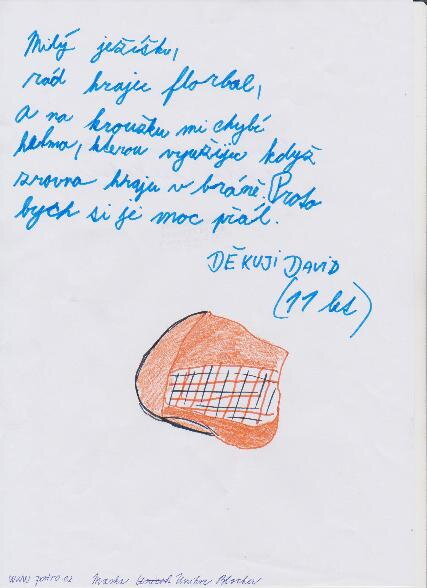 Milý ježíšku,
rád hraju florbal,
a na kroužku mi chybí
helma, kterou využiju když
zrovna hraju v bráně. Proto
bych si je moc přál.
DĚKUJI DAVID
(11 let)
Maska Unihoc